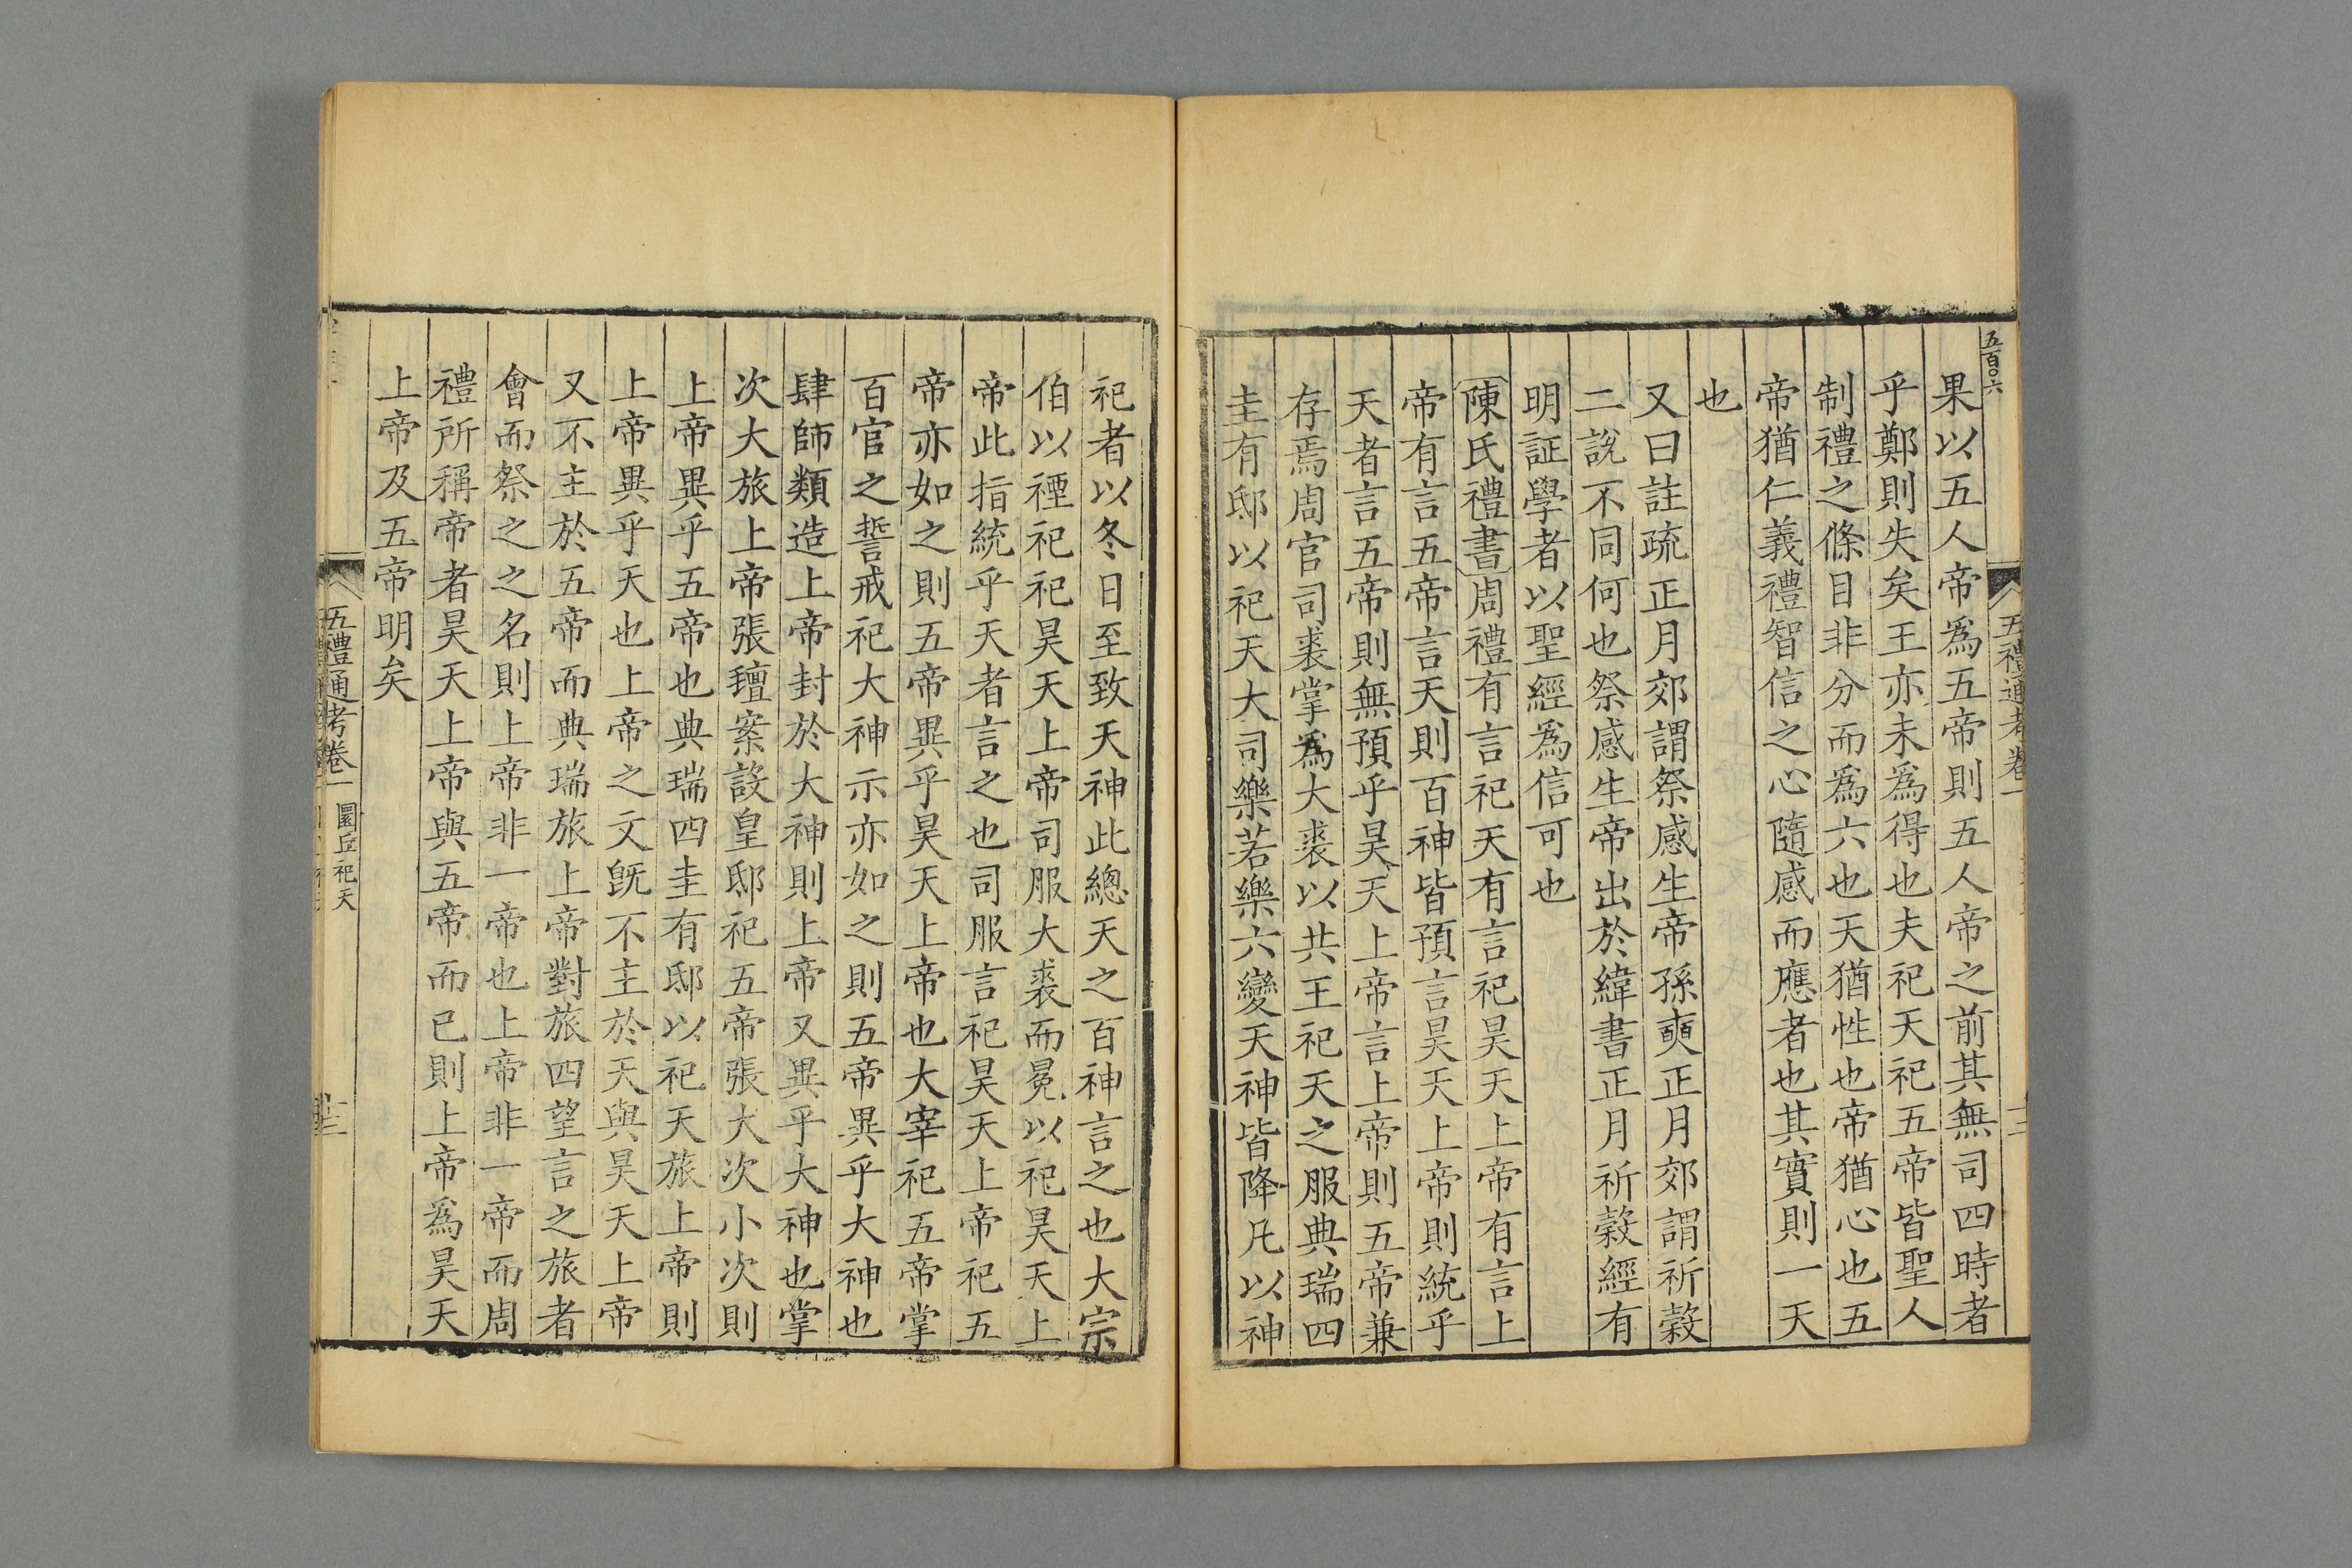 五百〇六
五禮通考卷一
果以五人帝爲五帝則五人帝之前其無司四時者
乎鄭則失矣王亦未爲得也夫祀天祀五帝皆聖人
制禮之條目非分而爲六也天猶性也帝猶心也五
帝猶仁義禮智信之心隨感而應者也其實則一天
也
又曰註疏正月郊謂祭感生帝孫奭正月郊謂祈穀
二說不同何也祭感生帝出於緯書正月祈穀經有
明証學者以聖經爲信可也
陳氏禮書周禮有言祀天有言祀昊天上帝有言上
帝有言五帝言天則百神皆預言昊天上帝則統乎
天者言五帝則無預乎昊天上帝言上帝則五帝兼
存焉周官司裘掌爲大裘以共王祀天之服典瑞四
圭有邸以祀天大司樂若樂六變天神皆降凡以神
祀者以冬日至致天神此總天之百神言之也大宗
伯以禋祀祀昊天上帝司服大裘而冕以祀昊天上
帝此指統乎天者言之也司服言祀昊天上帝祀五
帝亦如之則五帝異乎昊天上帝也大宰祀五帝掌
百官之誓戒祀大神示亦如之則五帝異乎大神也
肆師類造上帝封於大神則上帝又異乎大神也掌
次大旅上帝張氊案設皇邸祀五帝張大次小次則
上帝異乎五帝也典瑞四圭有邸以祀天旅上帝則
上帝異乎天也上帝之文旣不主於天與昊天上帝
又不主於五帝而典瑞旅上帝對旅四望言之旅者
會而祭之之名則上帝非一帝也上帝非一帝而周
禮所稱帝者昊天上帝與五帝而已則上帝爲昊天
上帝及五帝明矣
五禮通考卷一
圜丘祀天